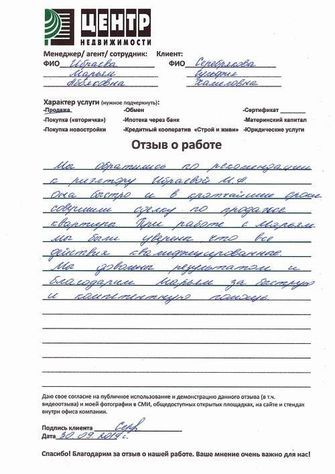 ЦЕНТР
НЕДВИЖИМОСТИ
Менеджер/ агент/ сотрудник: Клиент:
ФИО Ибраева ФИО Серебрякова
Марьям
Характер услуги (нужное подчеркнуть):
-Продажа -Обмен -Сертификат
-Покупка («вторичка») -Ипотека через банк -Материнский капитал
-Покупка новостройки -Кредитный кооператив «Строй и живи» -Юридические услуги
Отзыв о работе
Мы обратились по рекомендации
к риэлтору Ибраевой М.Ф.
она быстро и в кратчайшие сроки
совершили сделку по продаже
квартиры. При работе с Марьям
мы были уверены что все
действия квалифицированные.
Мы довольны результатом и
благодарим Марьям за быструю
и компетентную помощь.
Даю свое согласие на публичное использование и демонстрацию данного отзыва (в т.ч.
видеоотзыва) и моей фотографии в СМИ, общедоступных открытых площадках, на сайте и стендах
внутри офиса компании.
Подпись клиента
Дата 30.09.2019г.
Спасибо! Благодарим за отзыв о нашей работе. Ваше мнение очень важно для нас!